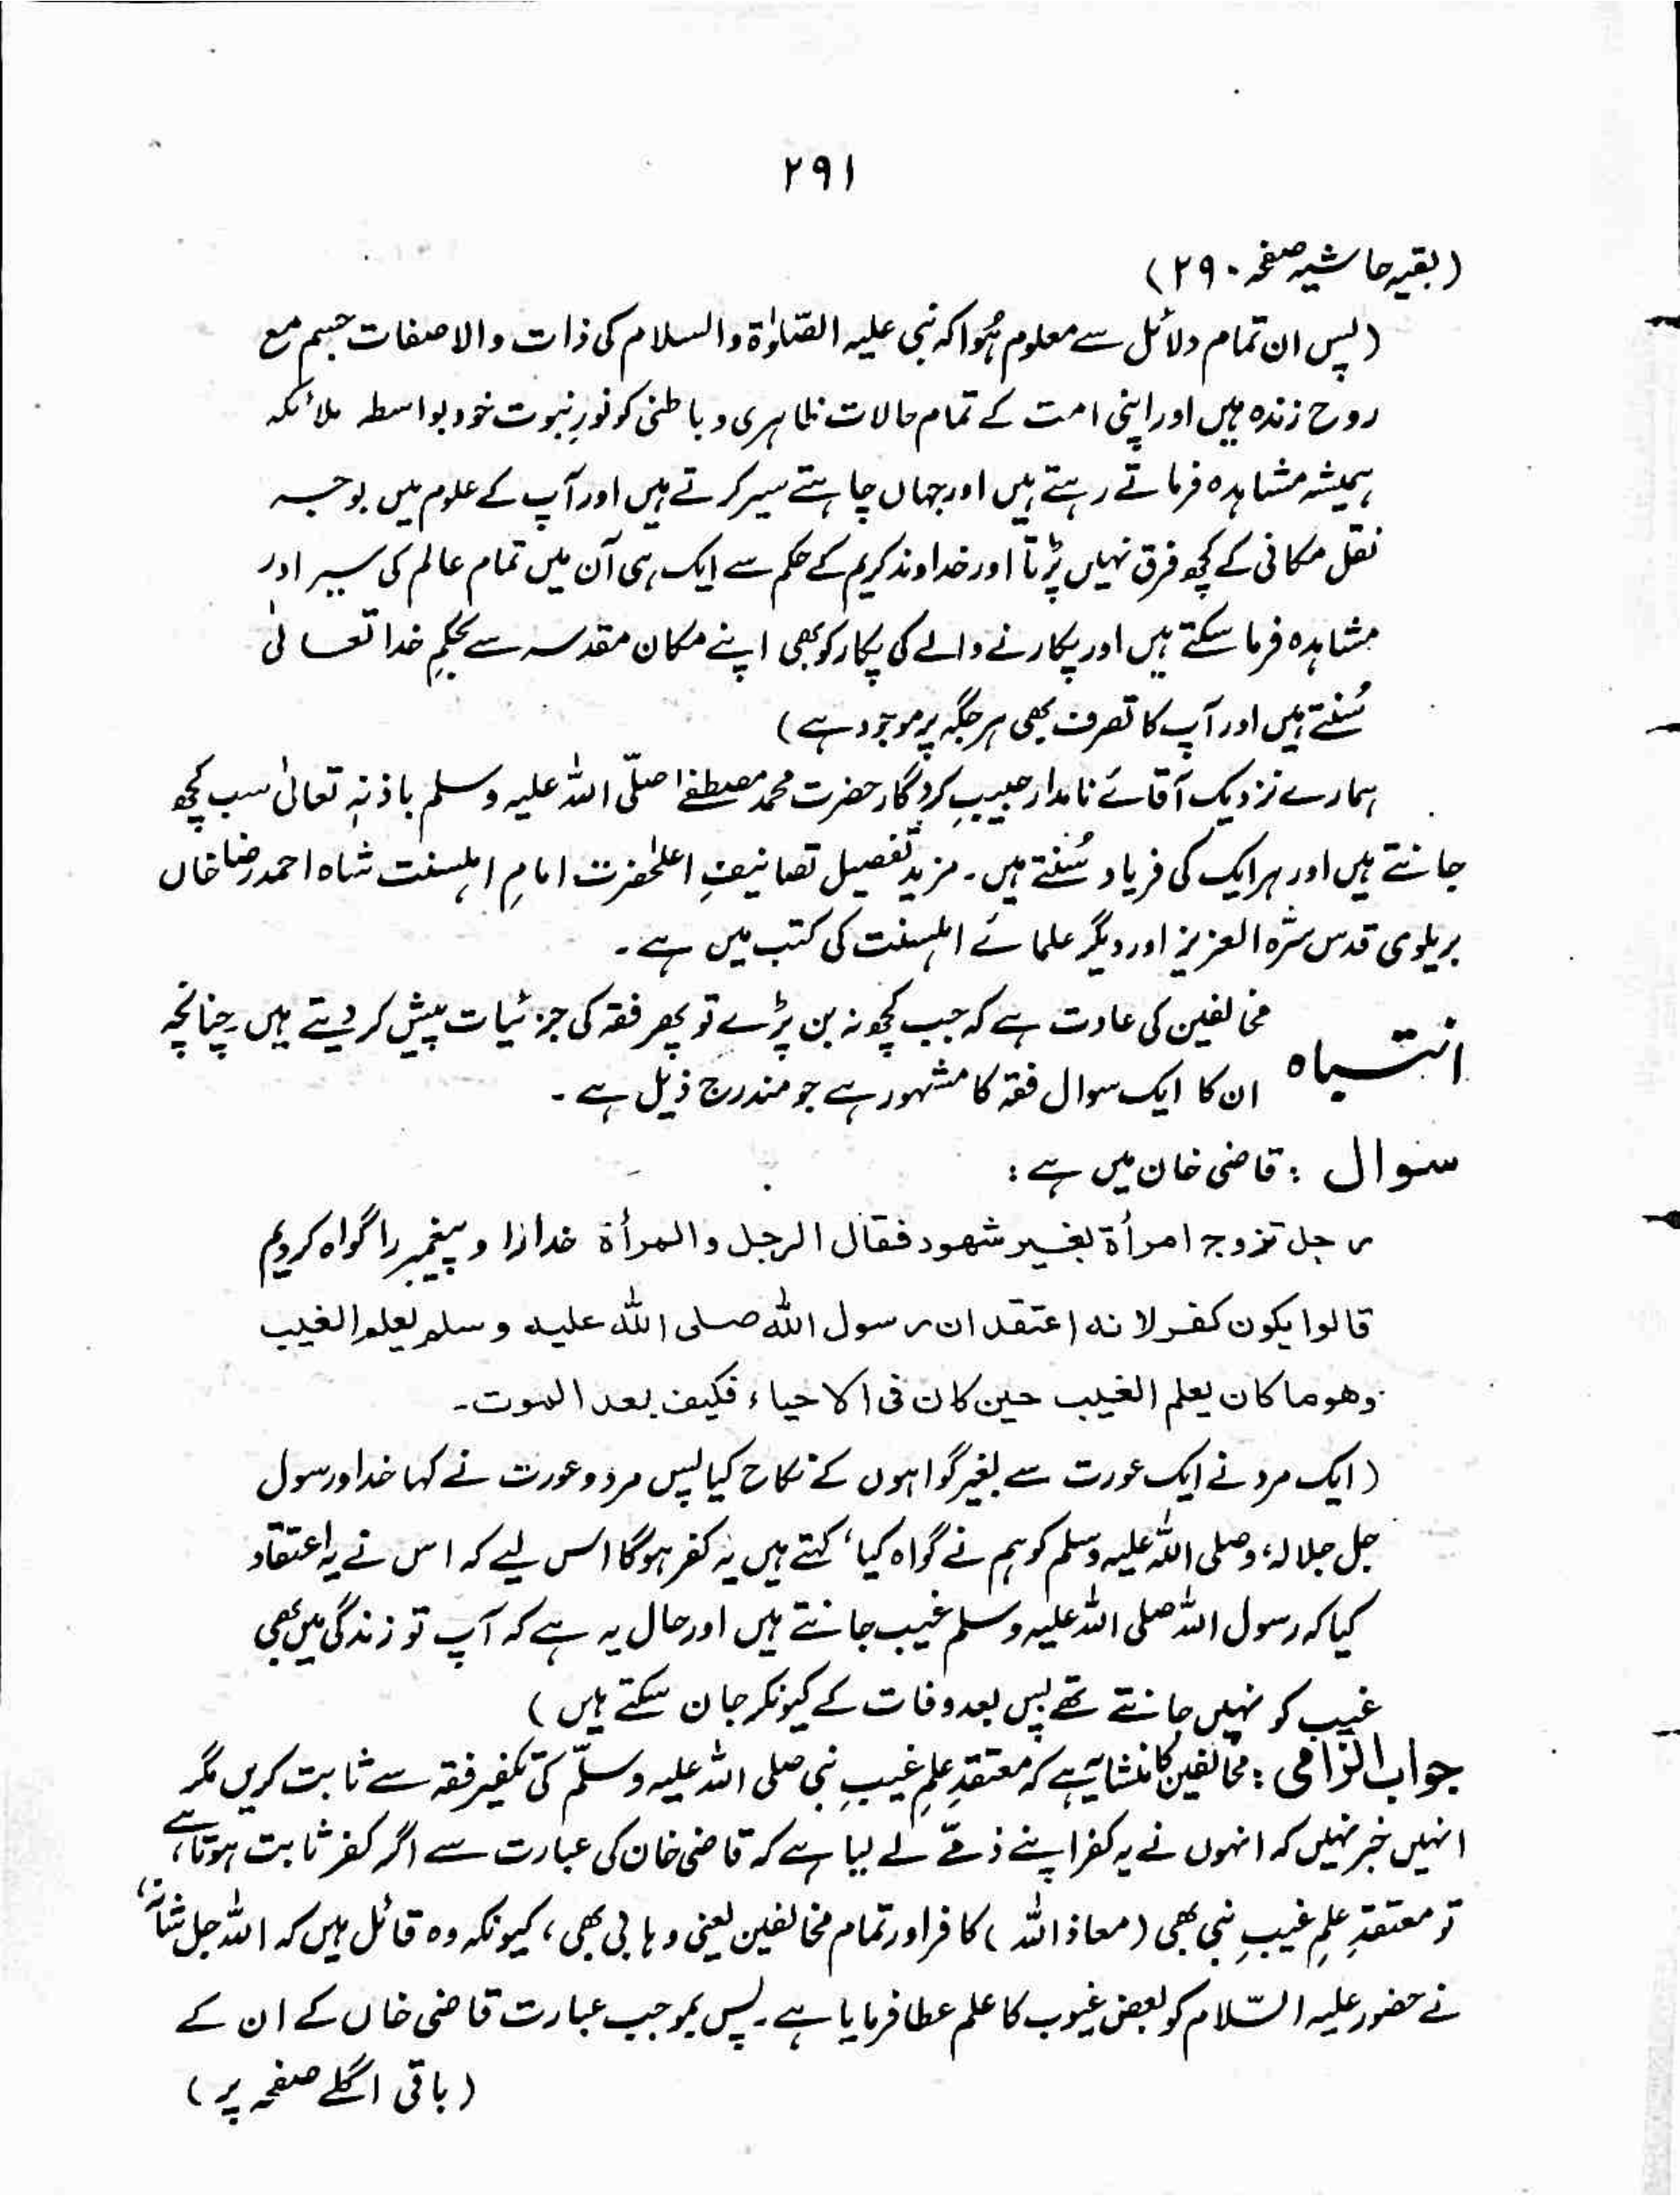 ۲۹۱
(بقیہ حاشیہ صفحہ ۲۹۰)
(پس ان تمام دلائل سے معلوم ہُوا کہ نبی علیہ الصّلوٰۃ والسلام کی ذات والا صفات جسم مع
روح زندہ ہیں اور اپنی امت کے تمام حالات ظاہری و باطنی کو نورِ نبوت خود بواسطہ ملائکہ
ہمیشہ مشاہدہ فرماتے رہتے ہیں اور جہاں چاہتے سیر کرتے ہیں اور آپ کے علوم میں بوجہ
نقل مکانی کے کچھ فرق نہیں پڑتا اور خداوند کریم کے حکم سے ایک ہی آن میں تمام عالم کی سیر اور
مشاہدہ فرما سکتے ہیں اور پکارنے والے کی پکار کو بھی اپنے مکان مقدسہ سے بحکمِ خدا تعالیٰ
سُنتے ہیں اور آپ کا تصرف بھی ہر جگہ پر موجود ہے)
ہمارے نزدیک آقائے نامدار حبیبِ کردگار حضرت محمد مصطفےٰ صلّی اللہ علیہ وسلم باذنہٖ تعالیٰ سب کچھ
جانتے ہیں اور ہر ایک کی فریاد سُنتے ہیں۔ مزید تفصیل تصانیفِ اعلٰحضرت امامِ اہلسنت شاہ احمد رضا خاں
بریلوی قدس سرّہ العزیز اور دیگر علمائے اہلسنت کی کتب میں ہے۔
انتباہ مخالفین کی عادت ہے کہ جب کچھ نہ بن پڑے تو پھر فقہ کی جزئیات پیش کر دیتے ہیں۔ چنانچہ
ان کا ایک سوال فقہ کا مشہور ہے جو مندرج ذیل ہے۔
سوال : قاضی خان میں ہے :
رجل تزوج امرأۃ بغیر شھود فقال الرجل والمرأۃ خدارا و پیغمبر را گواہ کردیم
قالوا یکون کفر لانہ اعتقد ان رسول اللہ صلی اللہ علیہ وسلم یعلم الغیب
وھو ما کان یعلم الغیب حین کان فی الاحیاء فکیف بعد الموت۔
(ایک مرد نے ایک عورت سے بغیر گواہوں کے نکاح کیا پس مرد و عورت نے کہا خدا و رسول
جل جلالہ، وصلی اللہ علیہ وسلم کو ہم نے گواہ کیا، کہتے ہیں یہ کفر ہوگا اس لیے کہ اس نے یہ اعتقاد
کیا کہ رسول اللہ صلی اللہ علیہ وسلم غیب جانتے ہیں اور حال یہ ہے کہ آپ تو زندگی میں بھی
غیب کو نہیں جانتے تھے پس بعد وفات کے کیونکر جان سکتے ہیں)
جواب الزامی : مخالفین کا منشا یہ ہے کہ معتقدِ علمِ غیبِ نبی صلی اللہ علیہ وسلّم کی تکفیر فقہ سے ثابت کریں مگر
انہیں خبر نہیں کہ انہوں نے یہ کفر اپنے ذمّے لے لیا ہے کہ قاضی خان کی عبارت سے اگر کفر ثابت ہوتا ہے،
تو معتقدِ علمِ غیبِ نبی بھی (معاذ اللہ) کافر اور تمام مخالفین یعنی وہابی بھی، کیونکہ وہ قائل ہیں کہ اللہ جل شانہ،
نے حضور علیہ السّلام کو بعض غیوب کا علم عطا فرمایا ہے۔ پس بموجب عبارت قاضی خاں کے ان کے
(باقی اگلے صفحہ پر)